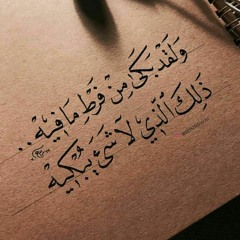 وَلَقَد بَكَى مِنْ فَرَطِ مَا فِيهِ ..
ذَلِكَ الَّذِي لَا شَيْءَ يُبْكِيهِ